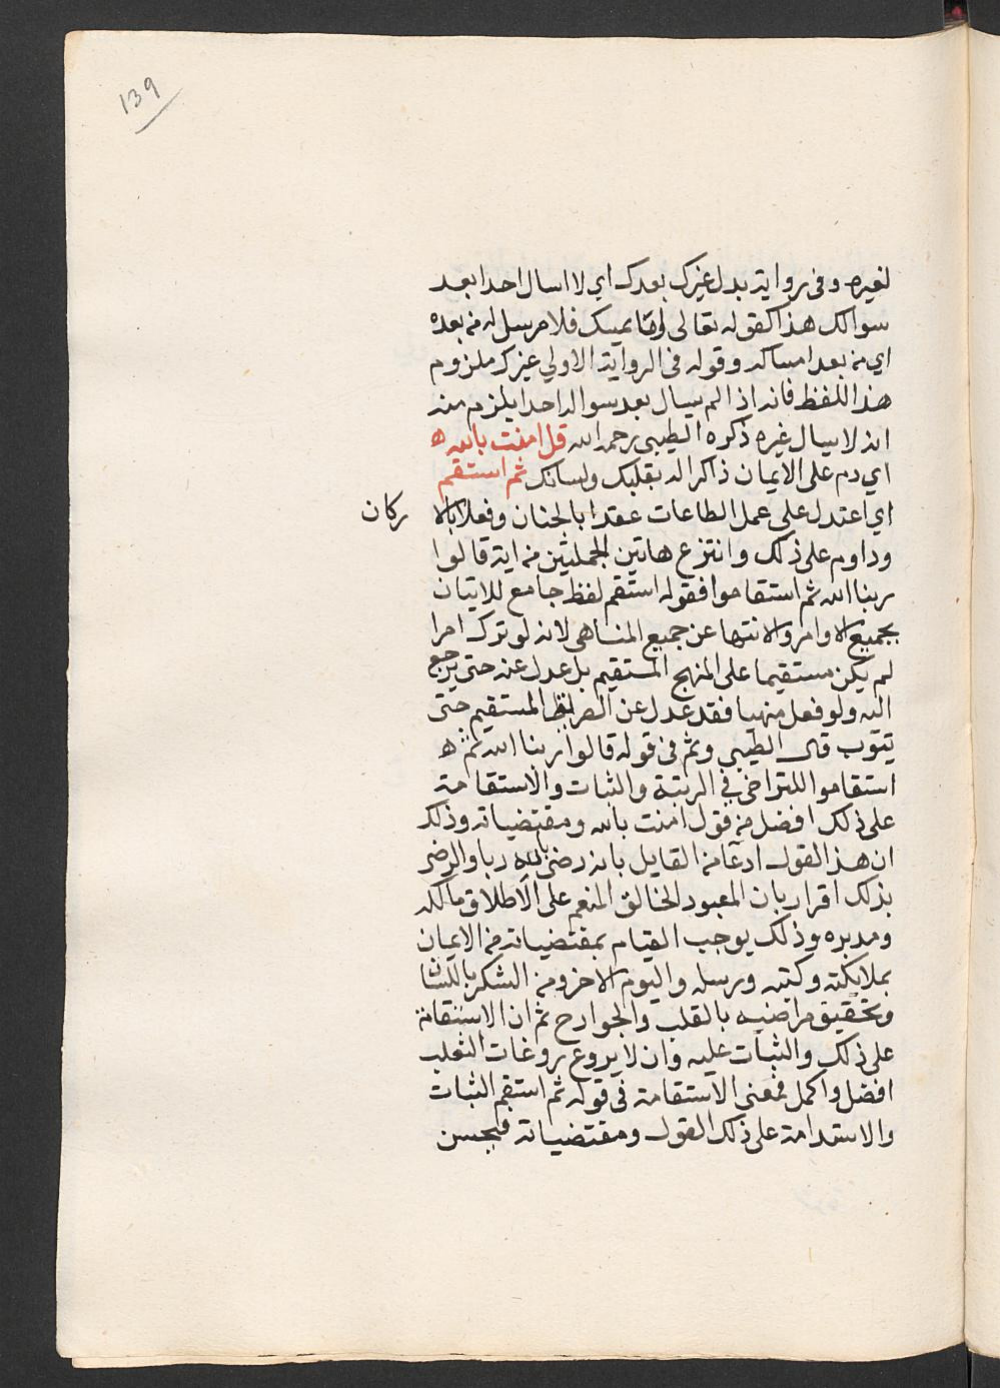 139
لغيره وفى رواية بدل غيرك بعدك اي لا اسال احدا بعد
سوالك هذا كقوله تعالى وما يمسك فلا مرسل له من بعده
اي من بعد امساكه وقوله فى الرواية الاولي غيرك ملزوم
هذا اللفظ فانه اذا لم يسال بعد سواله احدا يلزم منه
انه لا يسال غيره ذكره الطيبي رحمه الله قل امنت بالله ه
اي دم على الايمان ذاكرا له بقلبك ولسانك ثم استقم
اي اعتدل على عمل الطاعات عقدا بالجنان وفعلا بالا ركان
وداوم على ذلك وانتزع هاتين الجملتين من اية قالوا
ربنا الله ثم استقاموا فقوله استقم لفظ جامع للاتيان
بجميع الاوامر والانتها عن جميع المناهى لانه لو ترك امرا
لم يكن مستقيما على المنهج المستقيم بل عدل عنه حتى يرجع
اليه ولو فعل منهيا فقد عدل عن الصراط المستقيم حتى
يتوب قال الطيبي وثم فى قوله قالوا ربنا الله ثم ه
استقاموا للتراخى في الرتبة والثبات والاستقامة
على ذلك افضل من قول امنت بالله ومقتضياته وذلك
ان هذا القول ادعا من القايل بانه رضى بالله ربا والرضى
بذلك اقرار بان المعبود الخالق المنعم على الاطلاق مالكه
ومدبره وذلك يوجب القيام بمقتضياته من الايمان
بملايكته وكتبه ورسله واليوم الاخر ومن الشكر باللسان
وتحقيق مراضيه بالقلب والجوارح ثم ان الاستقامة
على ذلك والثبات عليه وان لا يروغ روغات الثعلب
افضل واكمل فمعنى الاستقامة فى قوله ثم استقم الثبات
والاستدامة على ذلك القول ومقتضياته فيحسن